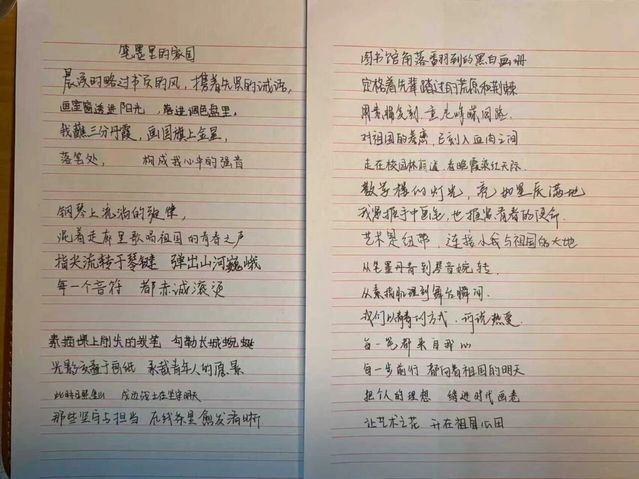 笔墨里的家国
晨读时略过书页的风，携着先贤的诫语，
画室窗透进阳光，落进调色盘里，
我蘸三分丹霞，画国旗上金星，
落笔处， 构成我心中的强音
钢琴上流淌的旋律，
混着走廊里歌唱祖国的青春之声
指尖流转于琴键 弹出山河巍峨
每一个音符 都赤诚滚烫
素描课上削尖的炭笔 勾勒长城蜿蜒
光影交叠于画纸 承载青年人的愿景
戍边战士在坚守明天
那些坚守与担当 在线条里愈发清晰
图书馆角落翻到的黑白画册
定格着先辈踏过的荒原和荆棘
用素描复刻
对祖国的眷恋，已刻入血肉之间
走在校园林荫道，看晚霞染红天际
教学楼的灯光，亮如星辰满地
我思
艺术是纽带 连接小我与祖国的大地
从笔墨丹青到琴音婉转
从素描肌理到舞台瞬间
我们以青春的方式，诉说热爱
每一笔都来自我心
每一步前行 都向着祖国的明天
把个人的理想 绘进时代画卷
让艺术之花 开在祖国心田